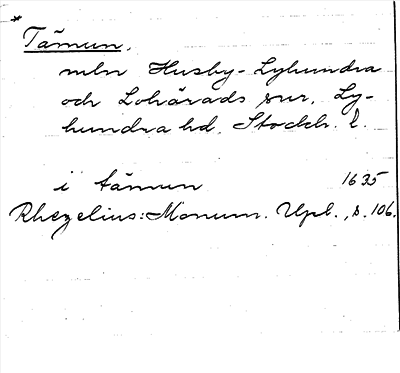 *
Tämun.
mln Husby-Lyhundra
och Lohärads snr, Ly-
hundra hd, Stockh. l.
i tämun 1635
Rhezelius: Monum. Upl., s. 106.